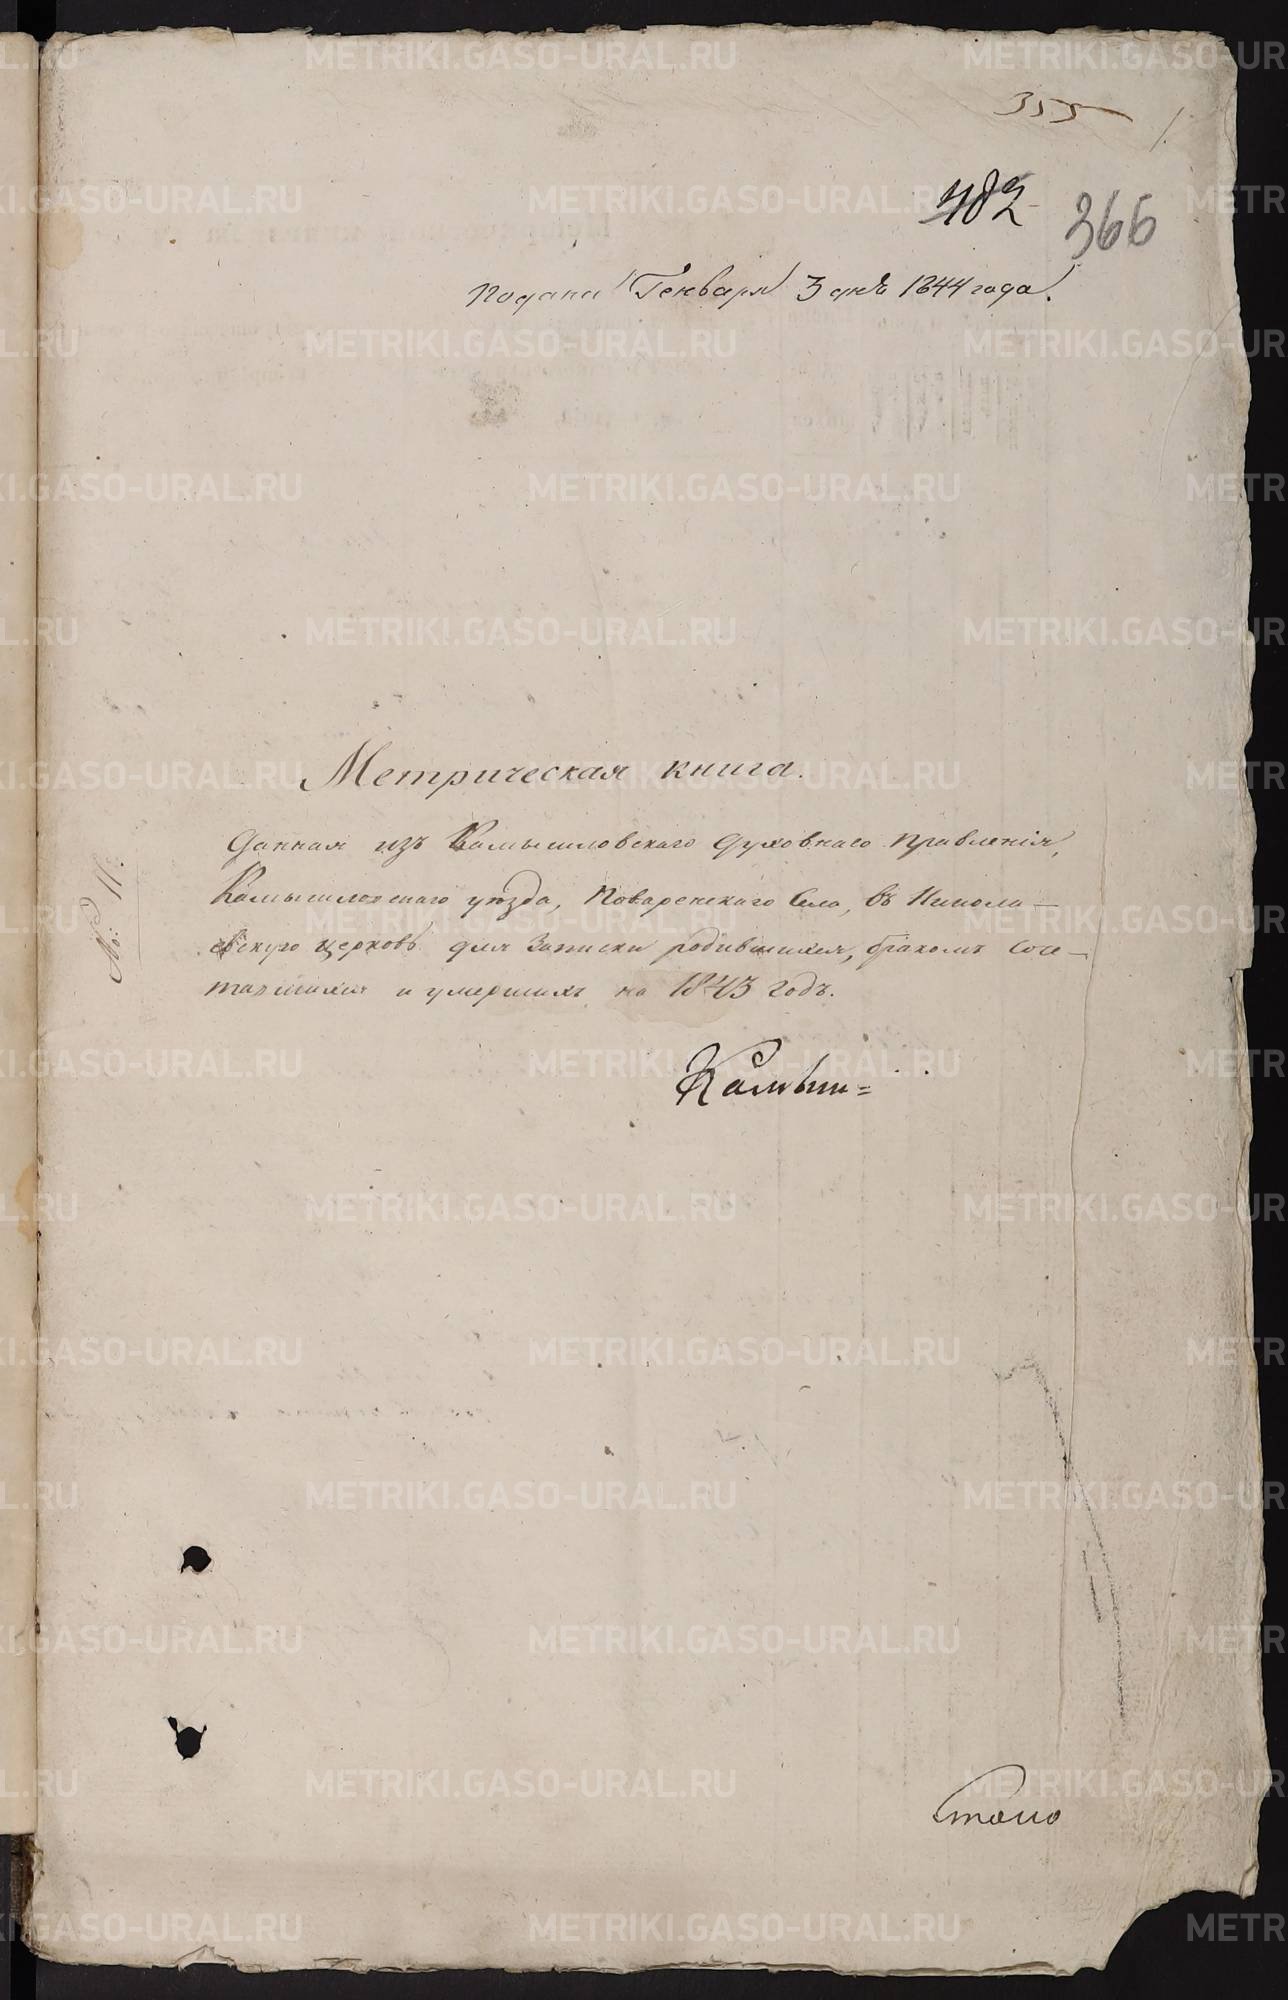 355
1.
482
366
Подана Генваря 3 дня 1844 года.
Метрическая книга.
Данная изъ Камышловскаго Духовнаго Правленія,
Камышловскаго уѣзда, Поваренскаго Села, въ Никола-
евскую церковь для Записки родившихся, бракомъ Соче-
тавшихся и умершихъ на 1843 годъ.
№: 11.
Камыш=
METRIKI.GASO-URAL.RU